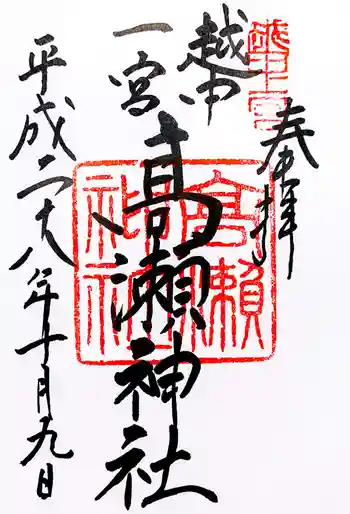 奉拝
越中一宮
越中
一宮
高瀬神社
高瀬神社
平成二十八年十月九日